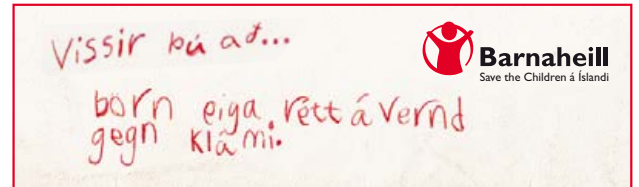 Vissir þú að...
Barnaheill
Save the Children á Íslandi
börn eiga rétt á vernd
gegn klámi.